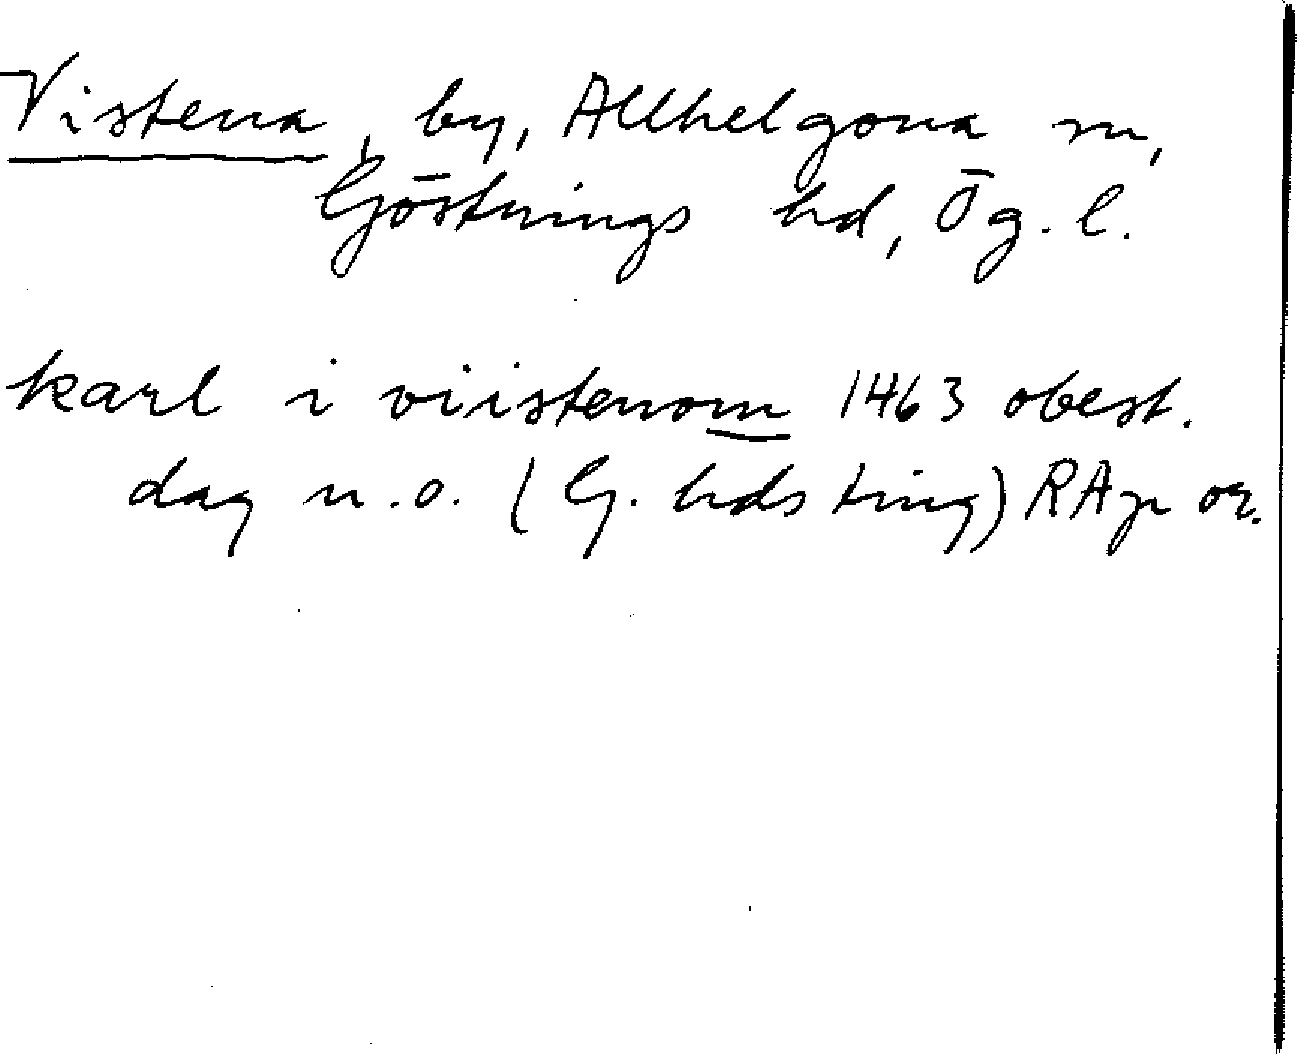 Vistena, by, Allhelgona sn,
Göstrings hd, Ög. l.
karl i viistenom 1463 obest.
dag u.o. (G. hds ting) RAp or.